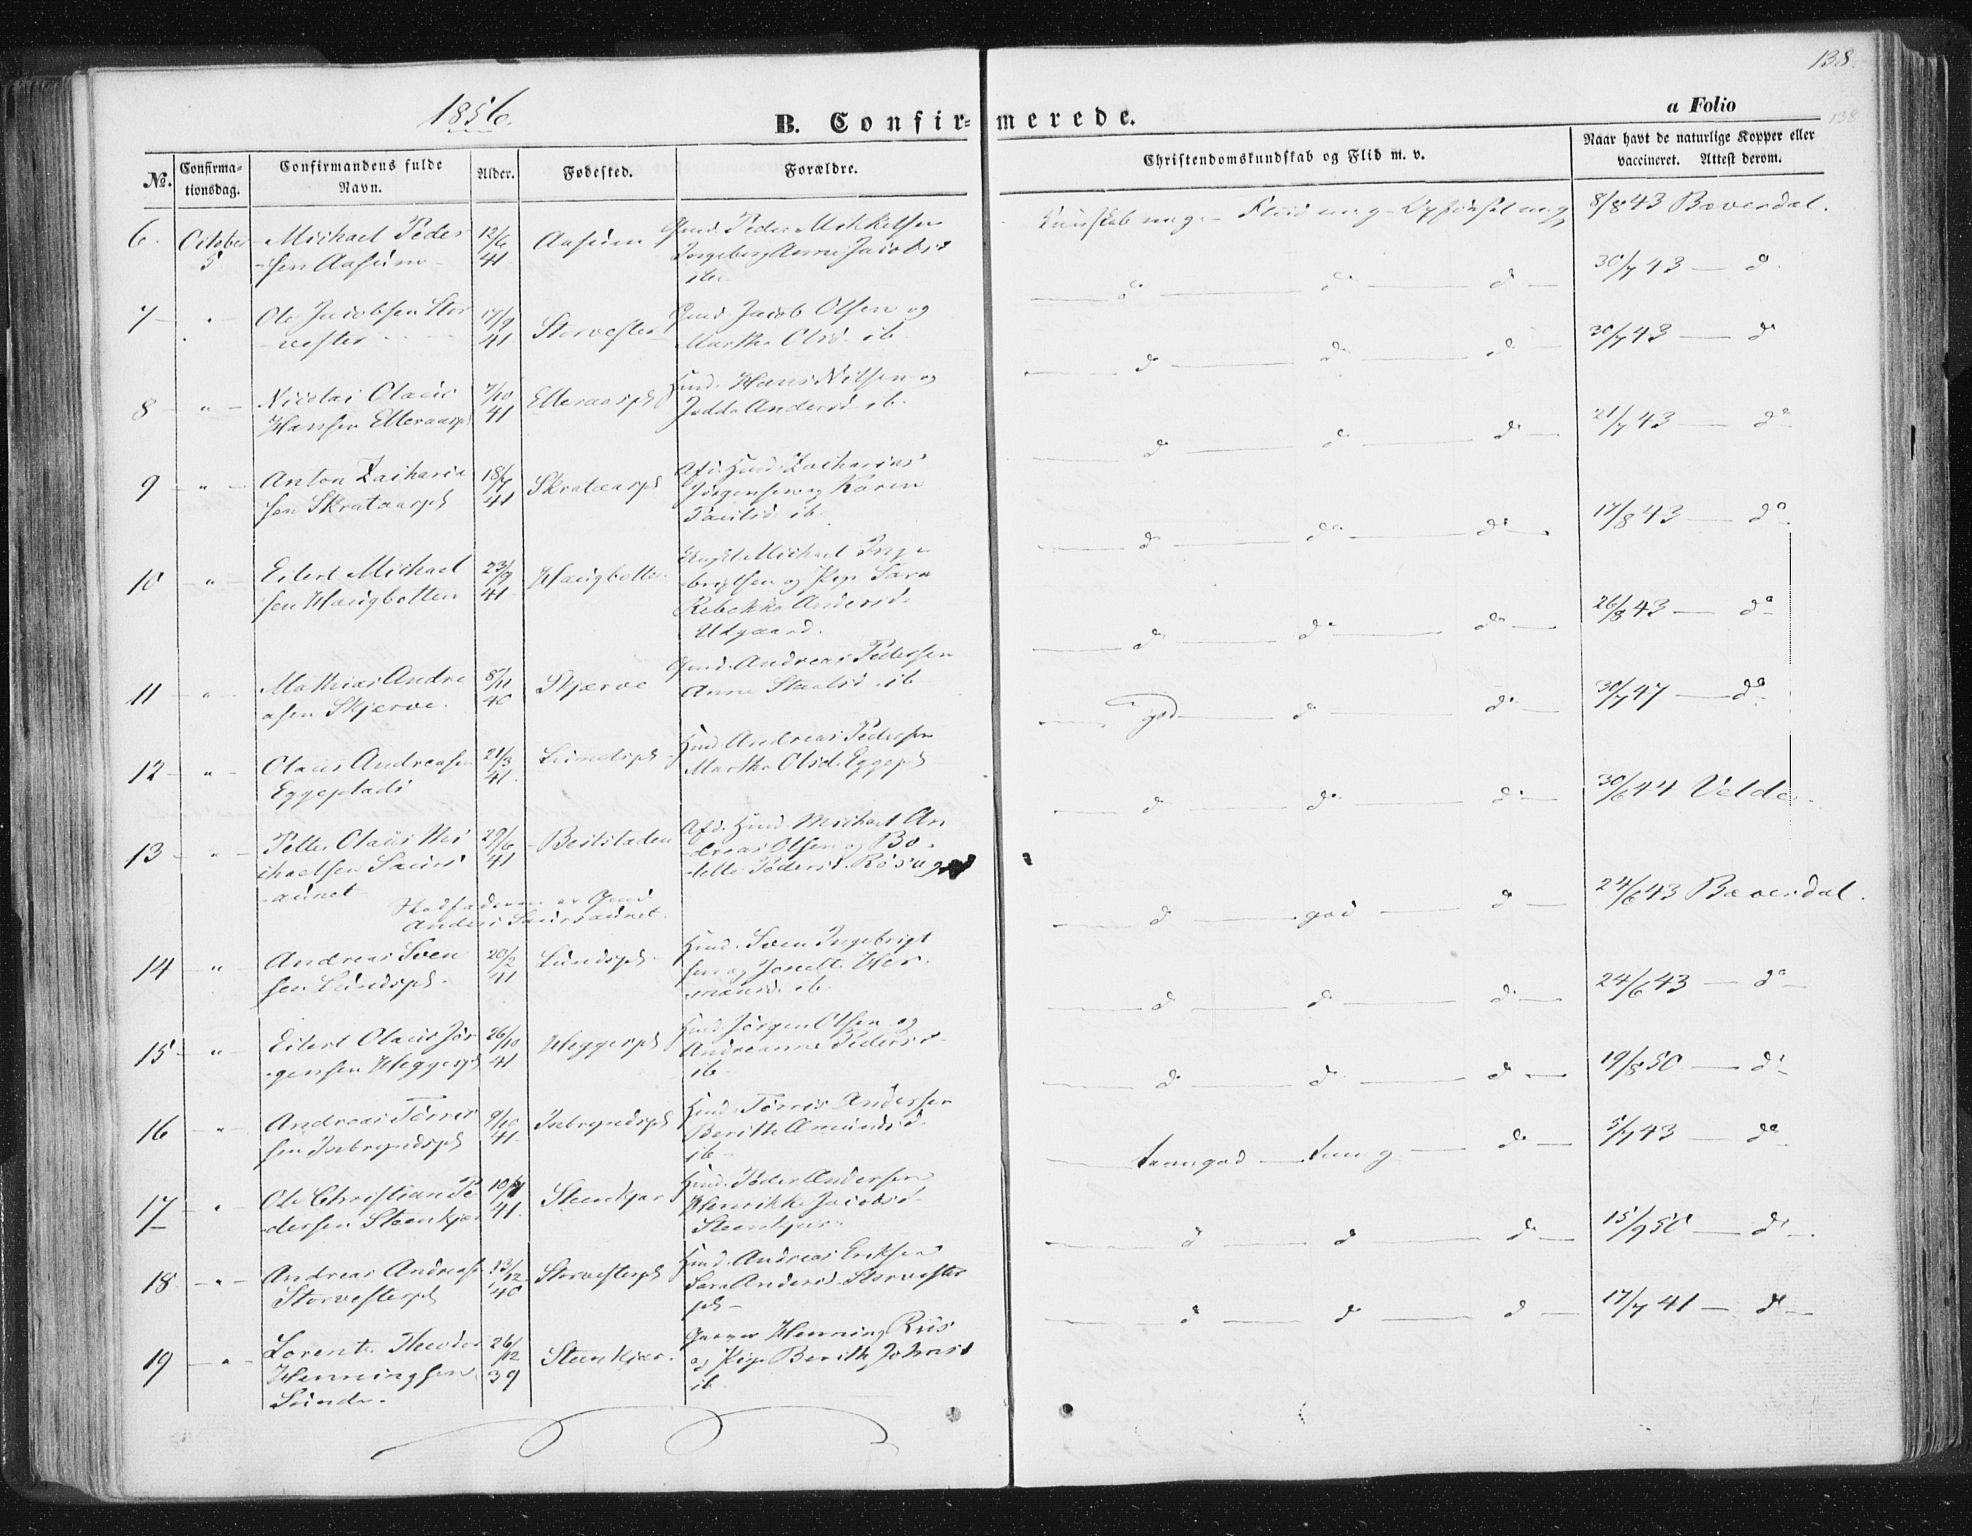 138.
1856.
B. Confirmerede.
a Folio
138
No.
Confirma-
tionsdag.
Confirmandens fulde
Navn.
Alder.
Fødested.
Forældre.
Christendomskundskab og Flid m. v.
Naar havt de naturlige Kopper eller
vaccineret. Attest derom.
6. October 5
Michael Peder
-sen Aasum
12/6 41
Aasum
Gmd. Peder Mikkelsen
Ingeborg Anne Jacobsd
ib.
Kundskab mg. - Fliid mg -
8/8 43 Bæverdal.
7 - " -
Ole Jacobsen Stor
-vester
17/9 41
Storvester
Gmd. Jacob Olsen og
Martha Olsd. ib.
d d d
30/7 43 - d
8 - " -
Nicolai Olaus
Hansen Elleraaspl
7/10 41
Elleraaspl
Hmd. Hans Nilsen og
Andersd. ib.
d d d
30/7 43 - d
9 - " -
Anton Zacharia
sen Skrataaspl
18/7 41
Skrataaspl
Afd. Hmd. Zacharias
Jørgensen og Karen
Paulsd ib.
d d d
21/7 43 - d
10 "
Eilert Michael
sen Haugbotten
23/9 41
Haugbotten
Michael Inge
-brigtsen og Pige Sara
Rebekka Andersd.
Utgaard.
d d d
17/8 43 - d
11 "
Mathias Andre
asen Skjerve.
8/11 40
Skjerve
Gmd. Andreas Pedersen
Anne ib
d d d
26/8 43 - d
12 - " -
Olaus Andreasen
Eggeplads
21/3 41.
Lundspl
Hmd Andreas Pedersen
Martha Olsd. Eggepl
god d d
30/7 47 - d
13 - " -
Petter Olaus Mi
chaelsen Saurs
-aunet
29/6 41
Beitstaden
Afd. Hmd. Michael An
-dreas Olsen og Bo-
-lette Pedersd.
Stedfaderen er Gmd
Anders Saursaunet.
d d d
30/6 44
14 - " -
Andreas Sven
sen Lundspl.
20/2 41
Lundspl.
Hmd. Sven Ingebrigt
sen og Her-
mansd. ib.
d god d
24/6 43 Bæverdal.
15 - " -
Eilert Olaus Jør
-gensen Heggespl
26/10 41
Heggespl
Hmd. Jørgen Olsen og
Andreanna Pedersd
ib.
d d d
24/6 43 - d
16 - " -
Andreas Torris
sen Inbryndspl
9/10 41.
Inbryndspl
Hmd. Torris Andersen
Berith Amundsd.
ib.
d d d
19/8 50 - d
17 - " -
Ole Christian Pe
-dersen Steenkjær
41.
Steenkjær
Hmd. Peder Andersen
Henrikke Jacobsd.
Steenkjær.
god mg d
5/7 43 - d
18 - " -
Andreas Andreasen
Storvesterpl
23/12 40
Storvesterpl
Hmd. Andreas Eriksen
Sara Andersd. Storvester
pl -
d d d
15/9 50 - d
19 - " -
Lorents Theodor
Henningsen
Sunde.
26/12 39
Steenkjær.
Henning Riis
og Pige Berith Johnsd
ib.
d d d
17/7 41 - d